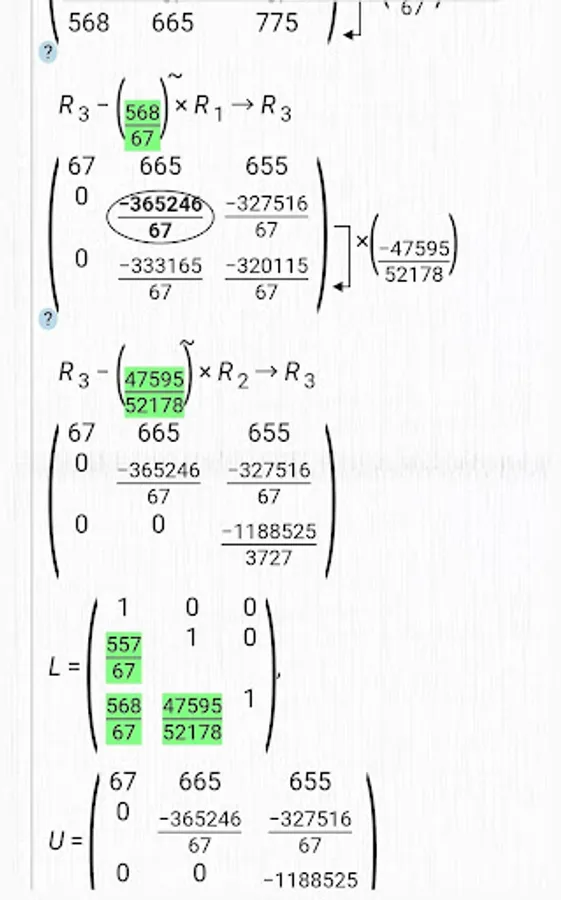 67
568 665 775
?
R3 − (568/67) × R1 → R3
67 665 655
0 −365246/67 −327516/67
0 −333165/67 −320115/67
×(−47595/52178)
?
R3 − (47595/52178) × R2 → R3
67 665 655
0 −365246/67 −327516/67
0 0 −1188525/3727
L = ( 1 0 0
557/67 1 0
568/67 47595/52178 1 ),
U = ( 67 665 655
0 −365246/67 −327516/67
0 0 −1188525 )